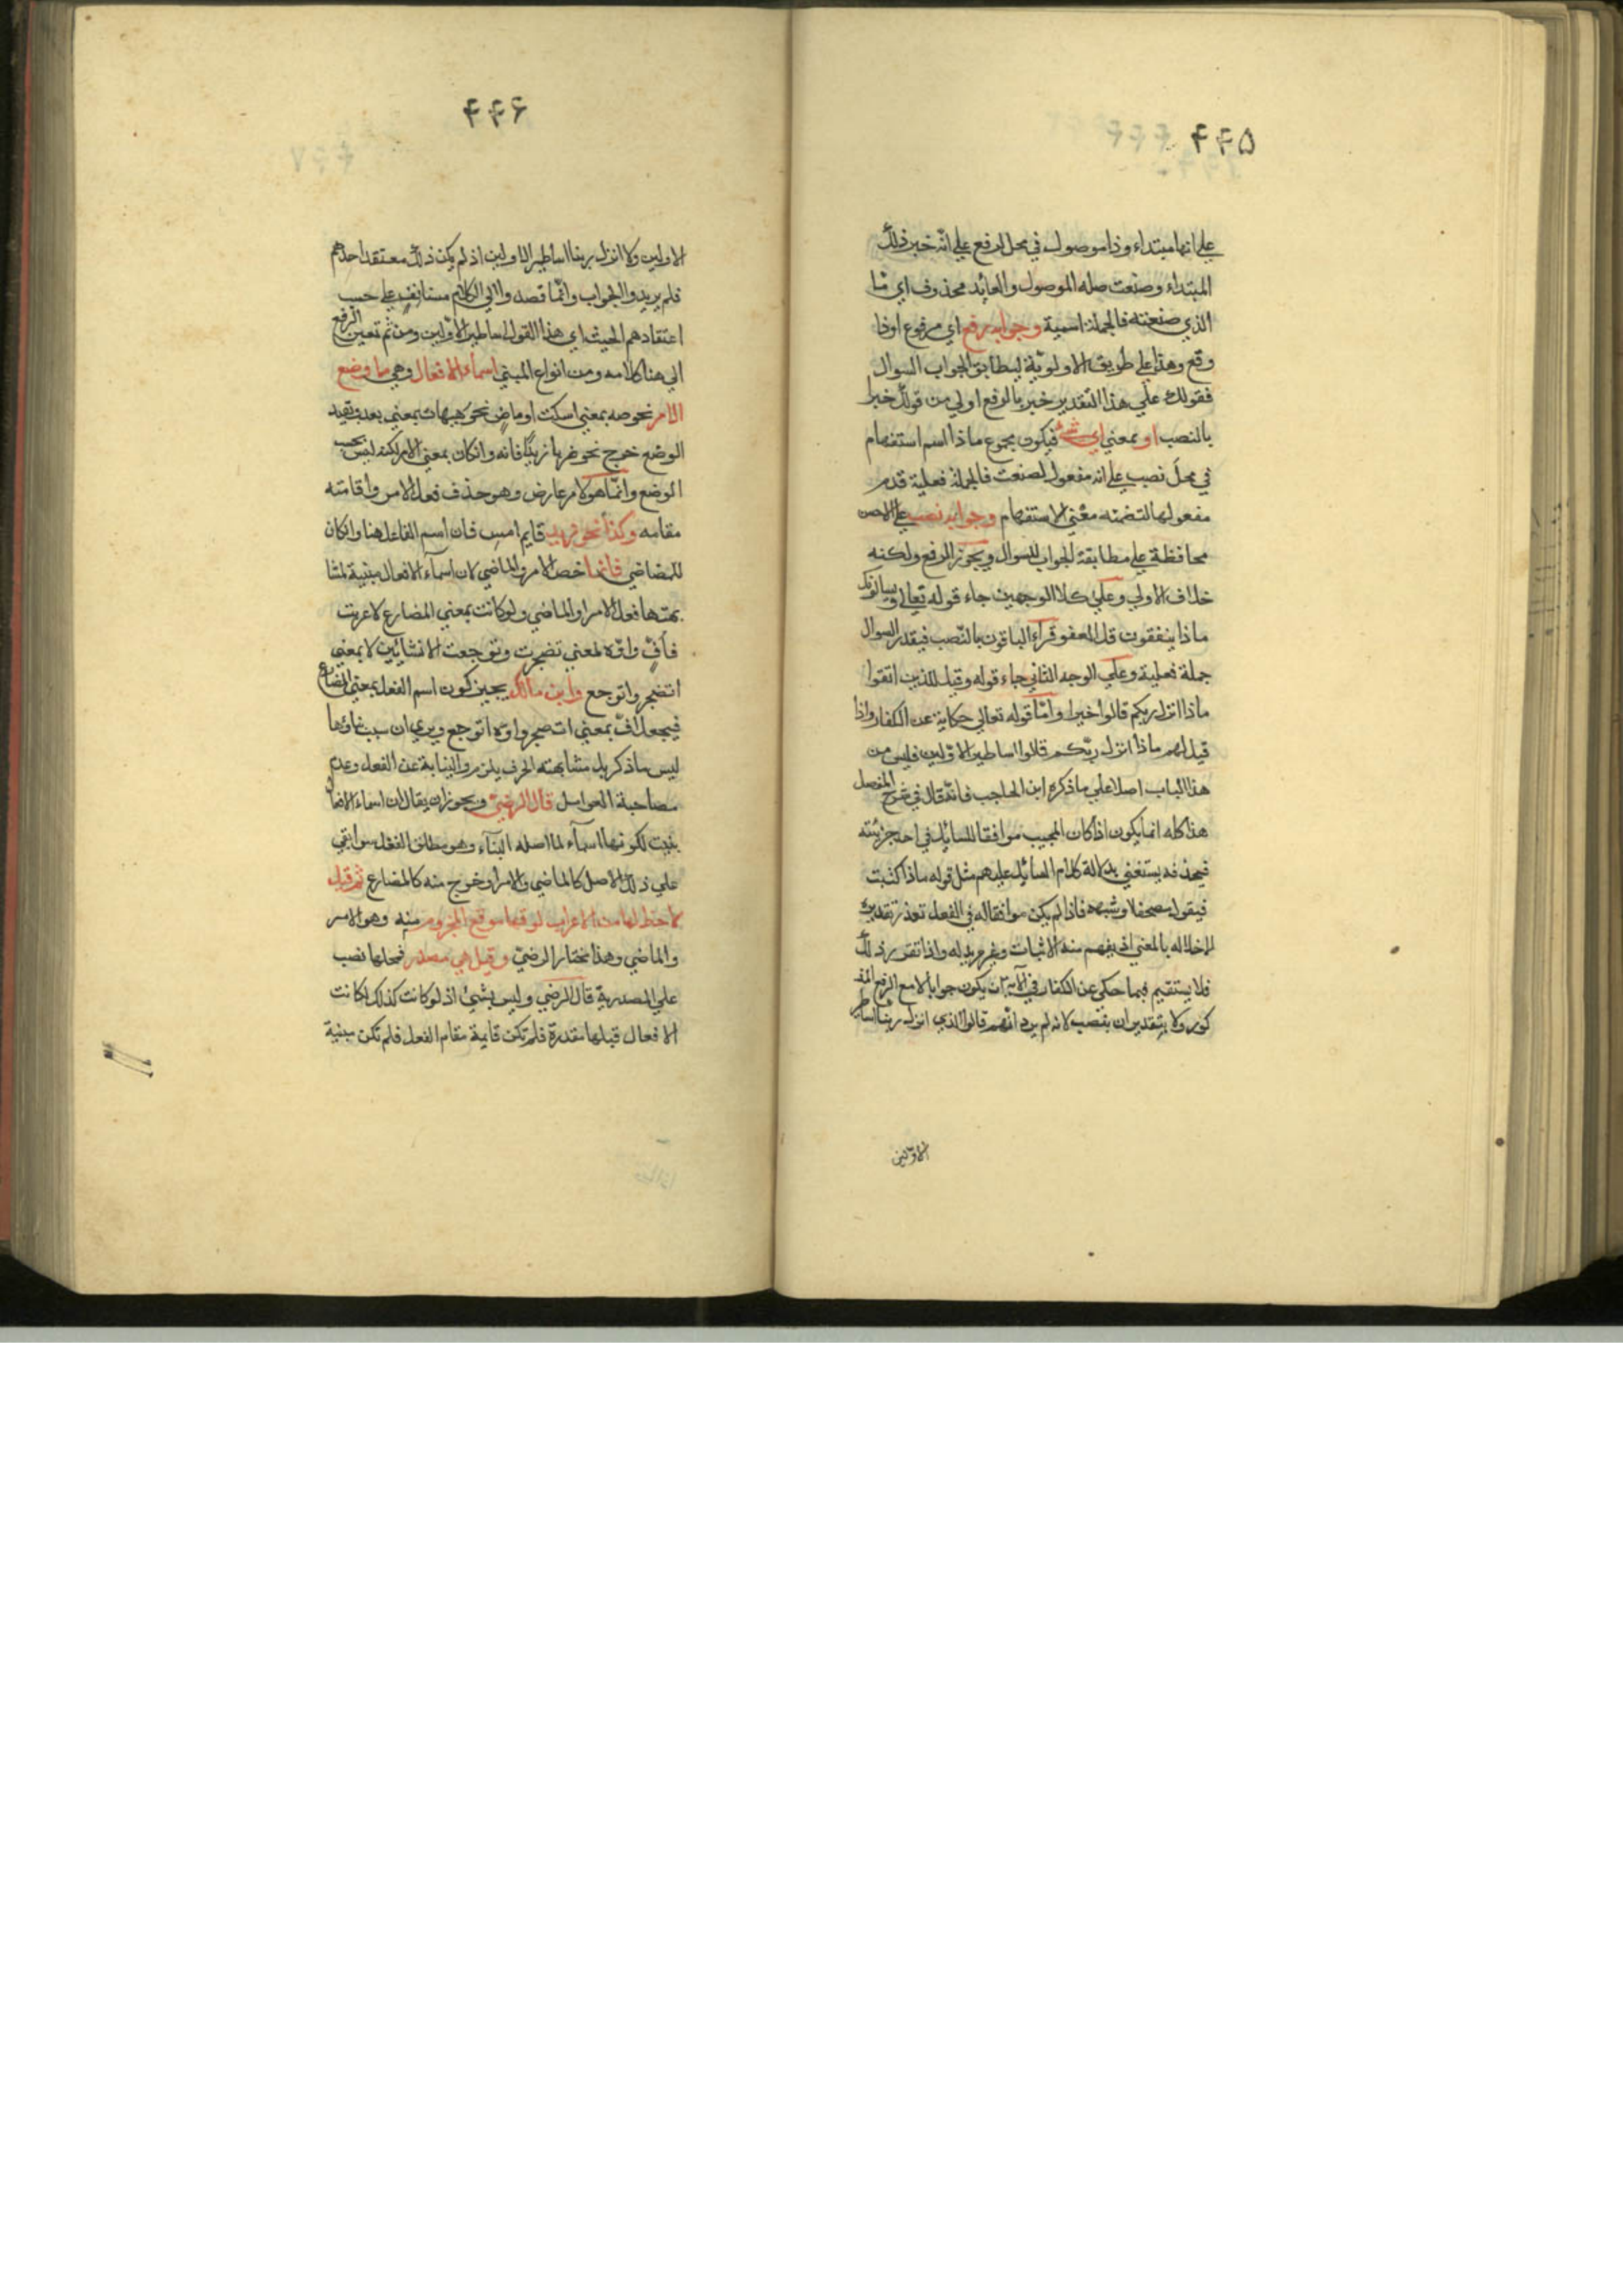 ۴۴۵
علي انها مبتداء وذا موصول في محل الرفع علي انه خبر ذلك
المبتداء وصنعت صله الموصول والعايد محذوف اي ما
الذي صنعته فالجملة اسمية وجوابه رفع اي مرفوع اذا
وقع وهذا علي طريق الاولوية ليطابق الجواب السوال
فقولك علي هذا التقدير خير بالرفع اولي من قولك خيرا
بالنصب او بمعني اي شئ فيكون مجموع ماذا اسم استفهام
في محل نصب علي انه مفعول لصنعت فالجملة فعلية قدم
مفعولها لتضمنه معني الاستفهام وجوابه نصب علي الاحسن
محافظة علي مطابقة الجواب للسوال ويجوز الرفع ولكنه
خلاف الاولي وعلي كلا الوجهين جاء قوله تعالي ويسالونك
ماذا ينفقون قل العفو قراء الباقون بالنصب فيقدر السوال
جملة فعلية وعلي الوجه الثاني جاء قوله وقيل للذين اتقوا
ماذا انزل ربكم قالوا خيرا وامّا قوله تعالي حكاية عن الكفار واذا
قيل لهم ماذا انزل ربّكم قالوا اساطير الاوّلين فليس من
هذا الباب اصلا علي ما ذكره ابن الحاجب فانّه قال في شرح المفصل
هذا كله انما يكون اذا كان المجيب موافقا للسايل في احد جزئيته
فيحذفه يستغني بدلالة كلام السايل عليهم مثل قوله ماذا كتبت
فيقول مصحفا وشبهه فاذا لم يكن موافقا له في الفعل تعذر تقديره
لاخلاله بالمعني اذ يفهم منه الاثبات وغير مريد له واذا تقرر ذلك
فلا يستقيم فيما حكي عن الكفار في الآية ان يكون جوابا لا مع الرفع المذ
كور ولا بتقدير ان ينصب لانه لم يرد انهم قالوا الذي انزل ربنا اساطير
الاوّلين
۴۴۶
الاولين ولا انزل ربنا اساطير الاولين اذ لم يكن ذلك معتقد احدهم
فلم يريدوا الجواب وانّما قصدوا الي الكلام مستانف علي حسب
اعتقادهم الحيث اي هذا القول اساطير الاوّلين ومن ثم تعين الرفع
الي هنا كلامه ومن انواع المبني اسماء الافعال وهي ما وضع
الامر نحو صه بمعني اسكت او ماض نحو هيهات بمعني بعد بقيد
الوضع خرج نحو ضربا زيدًا فانه وانكان بمعني الامر لكنه ليس بحسب
الوضع وانّما هو لامر عارض وهو حذف فعل الامر واقامته
مقامه وكذا نحو ضرب قايم امس فان اسم الفاعل هنا وانكان
للمضاضي فانما خص الامر والماضي لان اسماء الافعال مبنية لمشا
بهتها فعل الامر والماضي ولو كانت بمعني المضارع لاعربت
فأفّ واوّه لمعني تضجرت وتوجعت الانشايين لا بمعني
اتضجر واتوجع وابن مالك يجيز كون اسم الفعل بمعني المضارع
فيجعل افّ بمعني اتضجر واوّه اتوجع ويري ان سبب بناؤها
ليس ما ذكر بل مشابهته الحرف يلزم والنيابة عن الفعل وعدم
مصاحبة العوامل قال الرضيّ ويجوز ان يقال ان اسماء الافعال
بنيت لكونها اسماء لما اصله البناء وهو مطلق الفعل سوا بقي
علي ذلك الاصل كالماضي والامر او خرج منه كالمضارع ثم قيل
لا حظ لها من الاعراب لوقعها موقع المجزوم منه وهو الامر
والماضي وهذا مختار الرضيّ وقيل هي مصدر فمحلها نصب
علي المصدرية قال الرضي وليس بشئ اذ لو كانت كذلك لكانت
الافعال قبلها مقدرة فلم تكن قايمة مقام الفعل فلم تكن مبنية